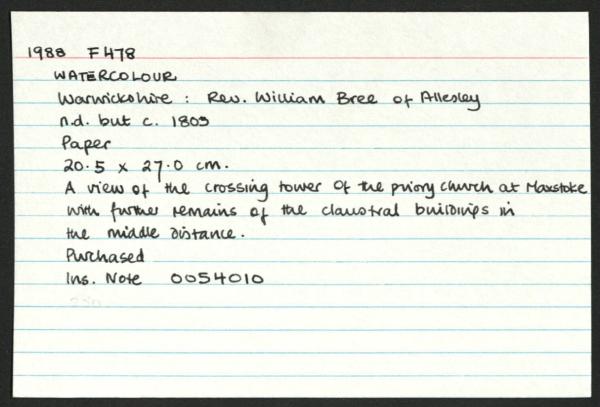 1988 F478
WATERCOLOUR
Warwickshire : Rev. William Bree of Allesley
n.d. but c. 1803
Paper
20.5 x 27.0 cm.
A view of the crossing tower of the priory church at Maxstoke
with further remains of the claustral buildings in
the middle distance.
Purchased
Ins. Note 0054010